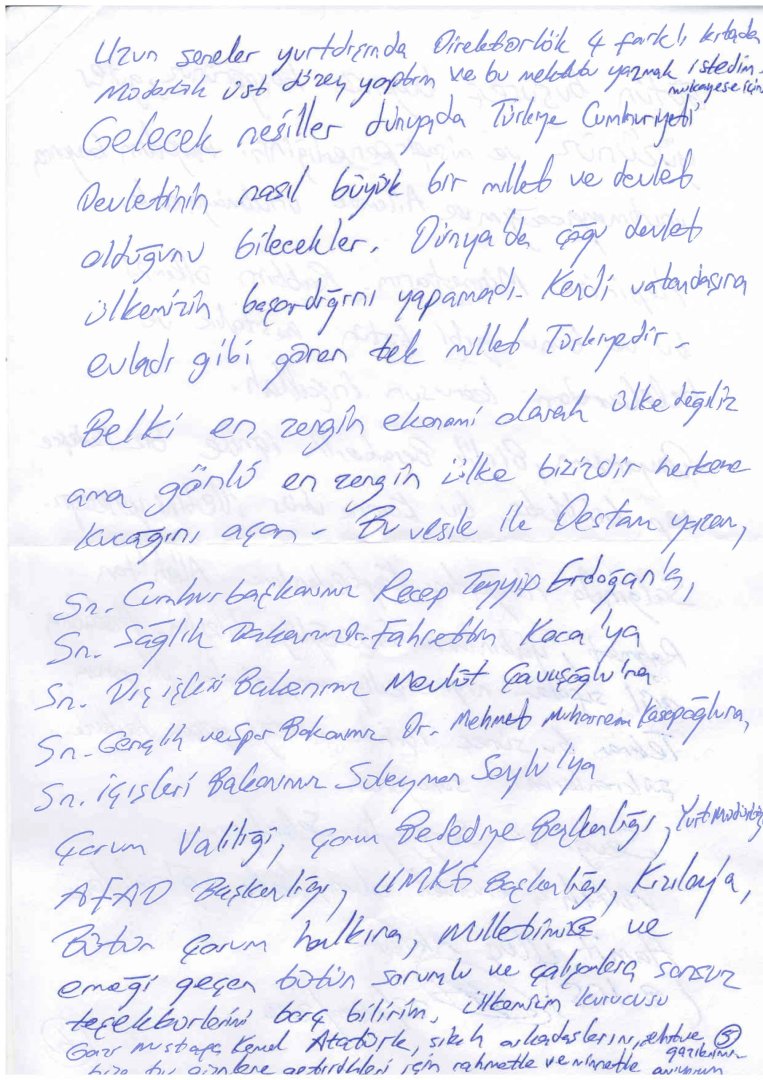 Uzun seneler yurtdışında Direktörlük 4 farklı kıtada
Müdürlük üst düzey yaptım ve bu mektubu yazmak istedim.
mukayese için
Gelecek nesiller dünyada Türkiye Cumhuriyeti
Devletinin nasıl büyük bir millet ve devlet
olduğunu bilecekler. Dünya'da çoğu devlet
ülkemizin başardığını yapamadı. Kendi vatandaşına
evladı gibi gören tek millet Türkiyedir.
Belki en zengin ekonomi olarak ülke değiliz
ama gönlü en zengin ülke bizizdir herkese
kucağını açan. Bu vesile ile Destan yazan,
Sn. Cumhurbaşkanımız Recep Tayyip Erdoğan'a,
Sn. Sağlık Bakanımız Dr. Fahrettin Koca'ya
Sn. Dış işleri Bakanımız Mevlüt Çavuşoğlu'na
Sn. Gençlik ve Spor Bakanımız Dr. Mehmet Muharrem Kasapoğluna,
Sn. içişleri Bakanımız Süleyman Soylu'ya
Çorum Valiliği, Çorum Belediye Başkanlığı, Yurt Müdürlüğü
AFAD Başkanlığı, UMKE Başkanlığı, Kızılay'a,
Bütün Çorum halkına, Milletimize ve
emeği geçen bütün sorumlu ve çalışanlara sonsuz
teşekkürlerimi borç bilirim. Ülkemizin kurucusu
Gazi Mustafa Kemal Atatürk, silah arkadaşlarını, şehit ve 5
gazilerimizi
bize bu günlere getirdikleri için rahmetle ve minnetle anıyorum